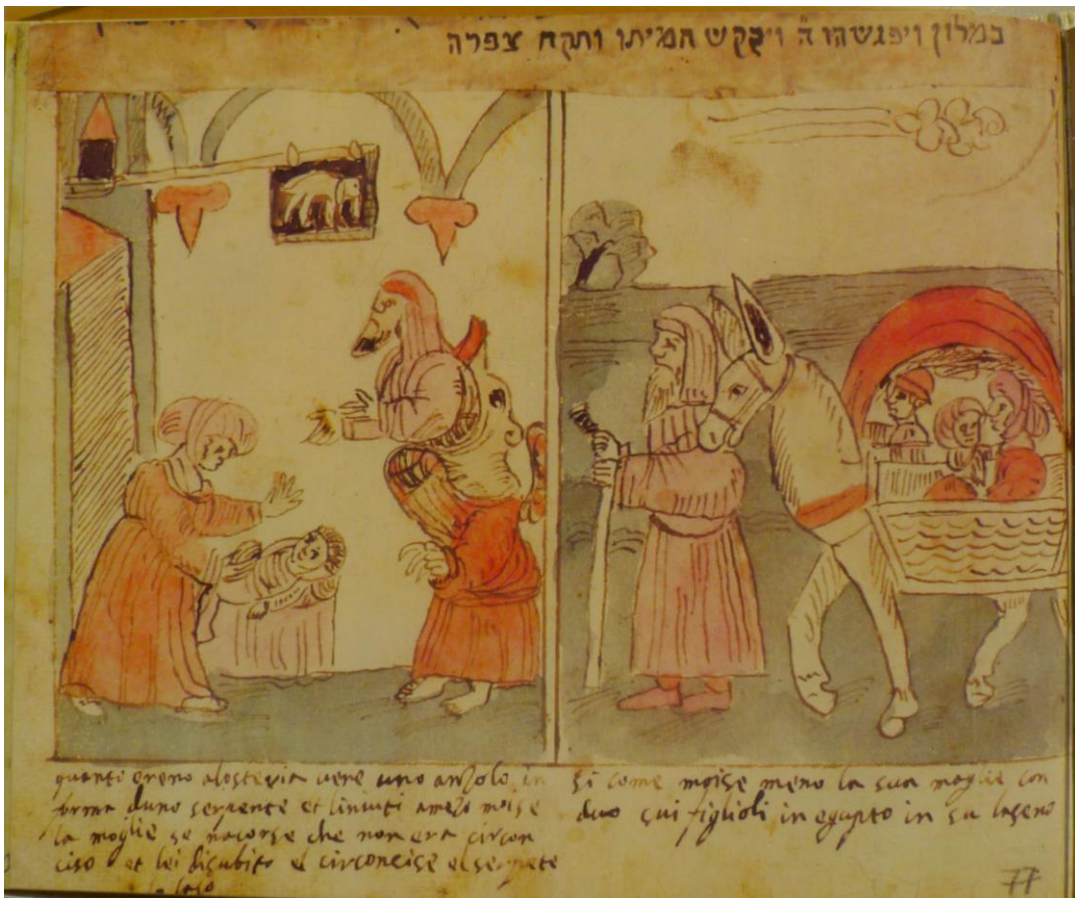 במלון ויפגשהו ה' ויבקש המיתו ותקח צפרה
quanti ereno alosteria vene uno anzolo in
forma duno serpente et linuiti amezo moise
la moglie se nacorse che non era circon
ciso et lei disubito el circoncise el serpete
lo laso
si come moise meno la sua moglie con
duo sui figlioli in egypto in su laseno
77